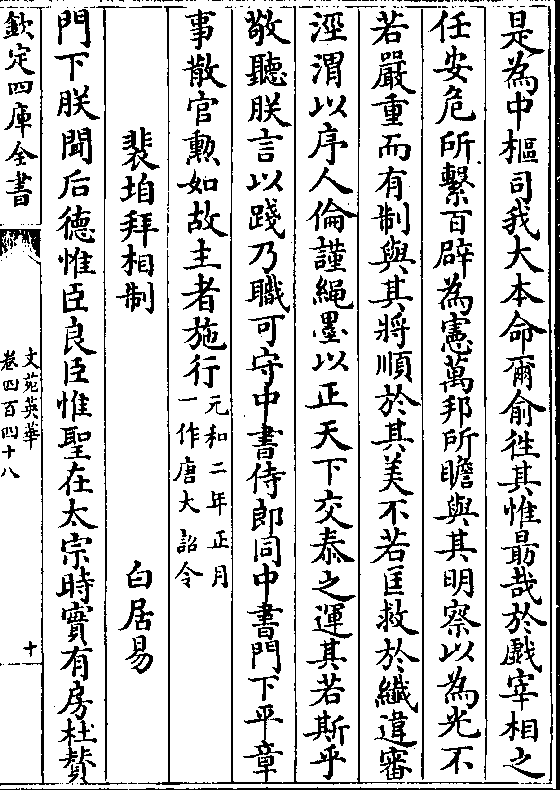 是為中樞司我大本命爾俞徃其惟勗哉於戲宰相之
任安危所繫百辟為憲萬邦所瞻與其明察以為光不
若嚴重而有制與其將順於其美不若匡救於纖違審
涇渭以序人倫謹繩墨以正天下交泰之運其若斯乎
敬聽朕言以踐乃職可守中書侍郎同中書門下平章
事散官勲如故主者施行元和二年正月
一作唐大詔令
裴垍拜相制 白居易
門下朕聞后徳惟臣良臣惟聖在太宗時實有房杜贊
欽定四庫全書
文苑英華
卷四百四十八
十